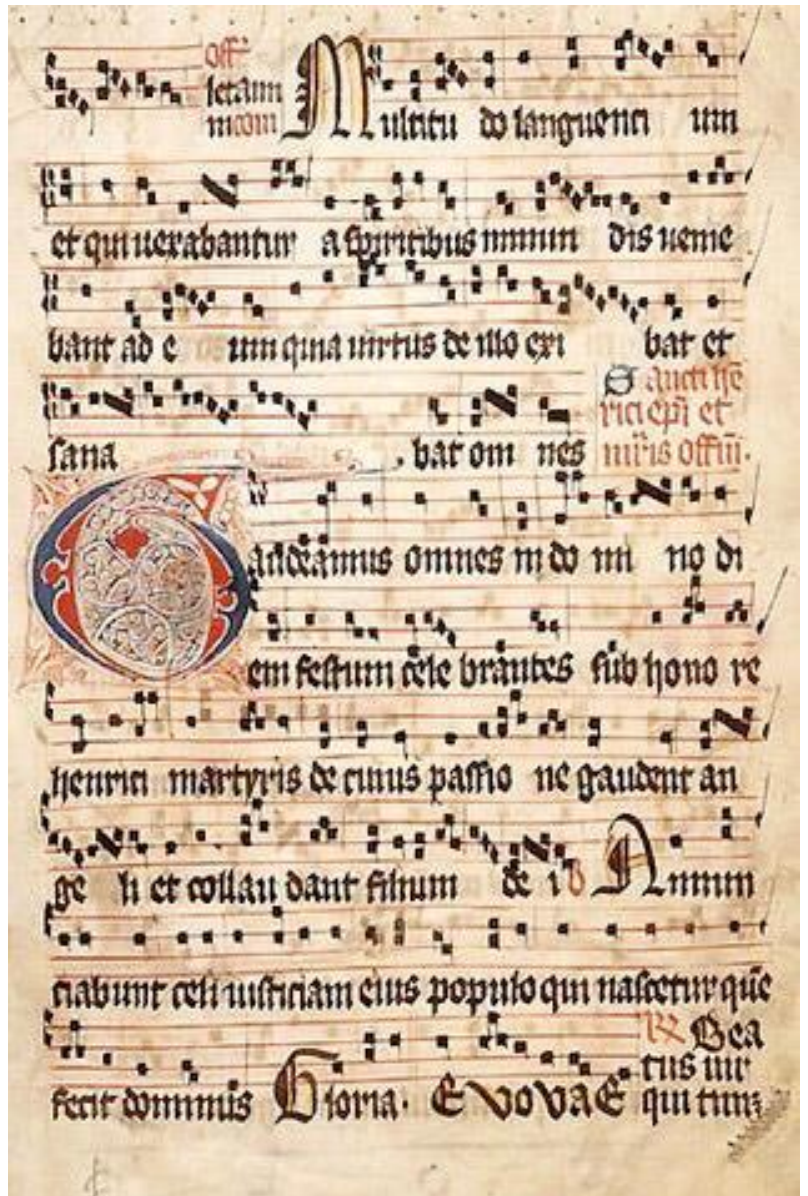 off
letamini
in dom Multitu do languenti um
et qui uexabantur a spiritibus inmun dis uenie
bant ad e um quia uirtus de illo exi bat et
sana bat om nes
Sancti hē
rici epi et
mris offm.
Gaudeamus omnes in do mi no di
em festum cele brantes sub hono re
henrici martyris de cuius passio ne gaudent an
ge li et collau dant filium de i Annun
ciabunt celi iusticiam eius populo qui nascetur quē
fecit dominus Gloria. E VOVAE
Bea
tus uir
qui timȝ